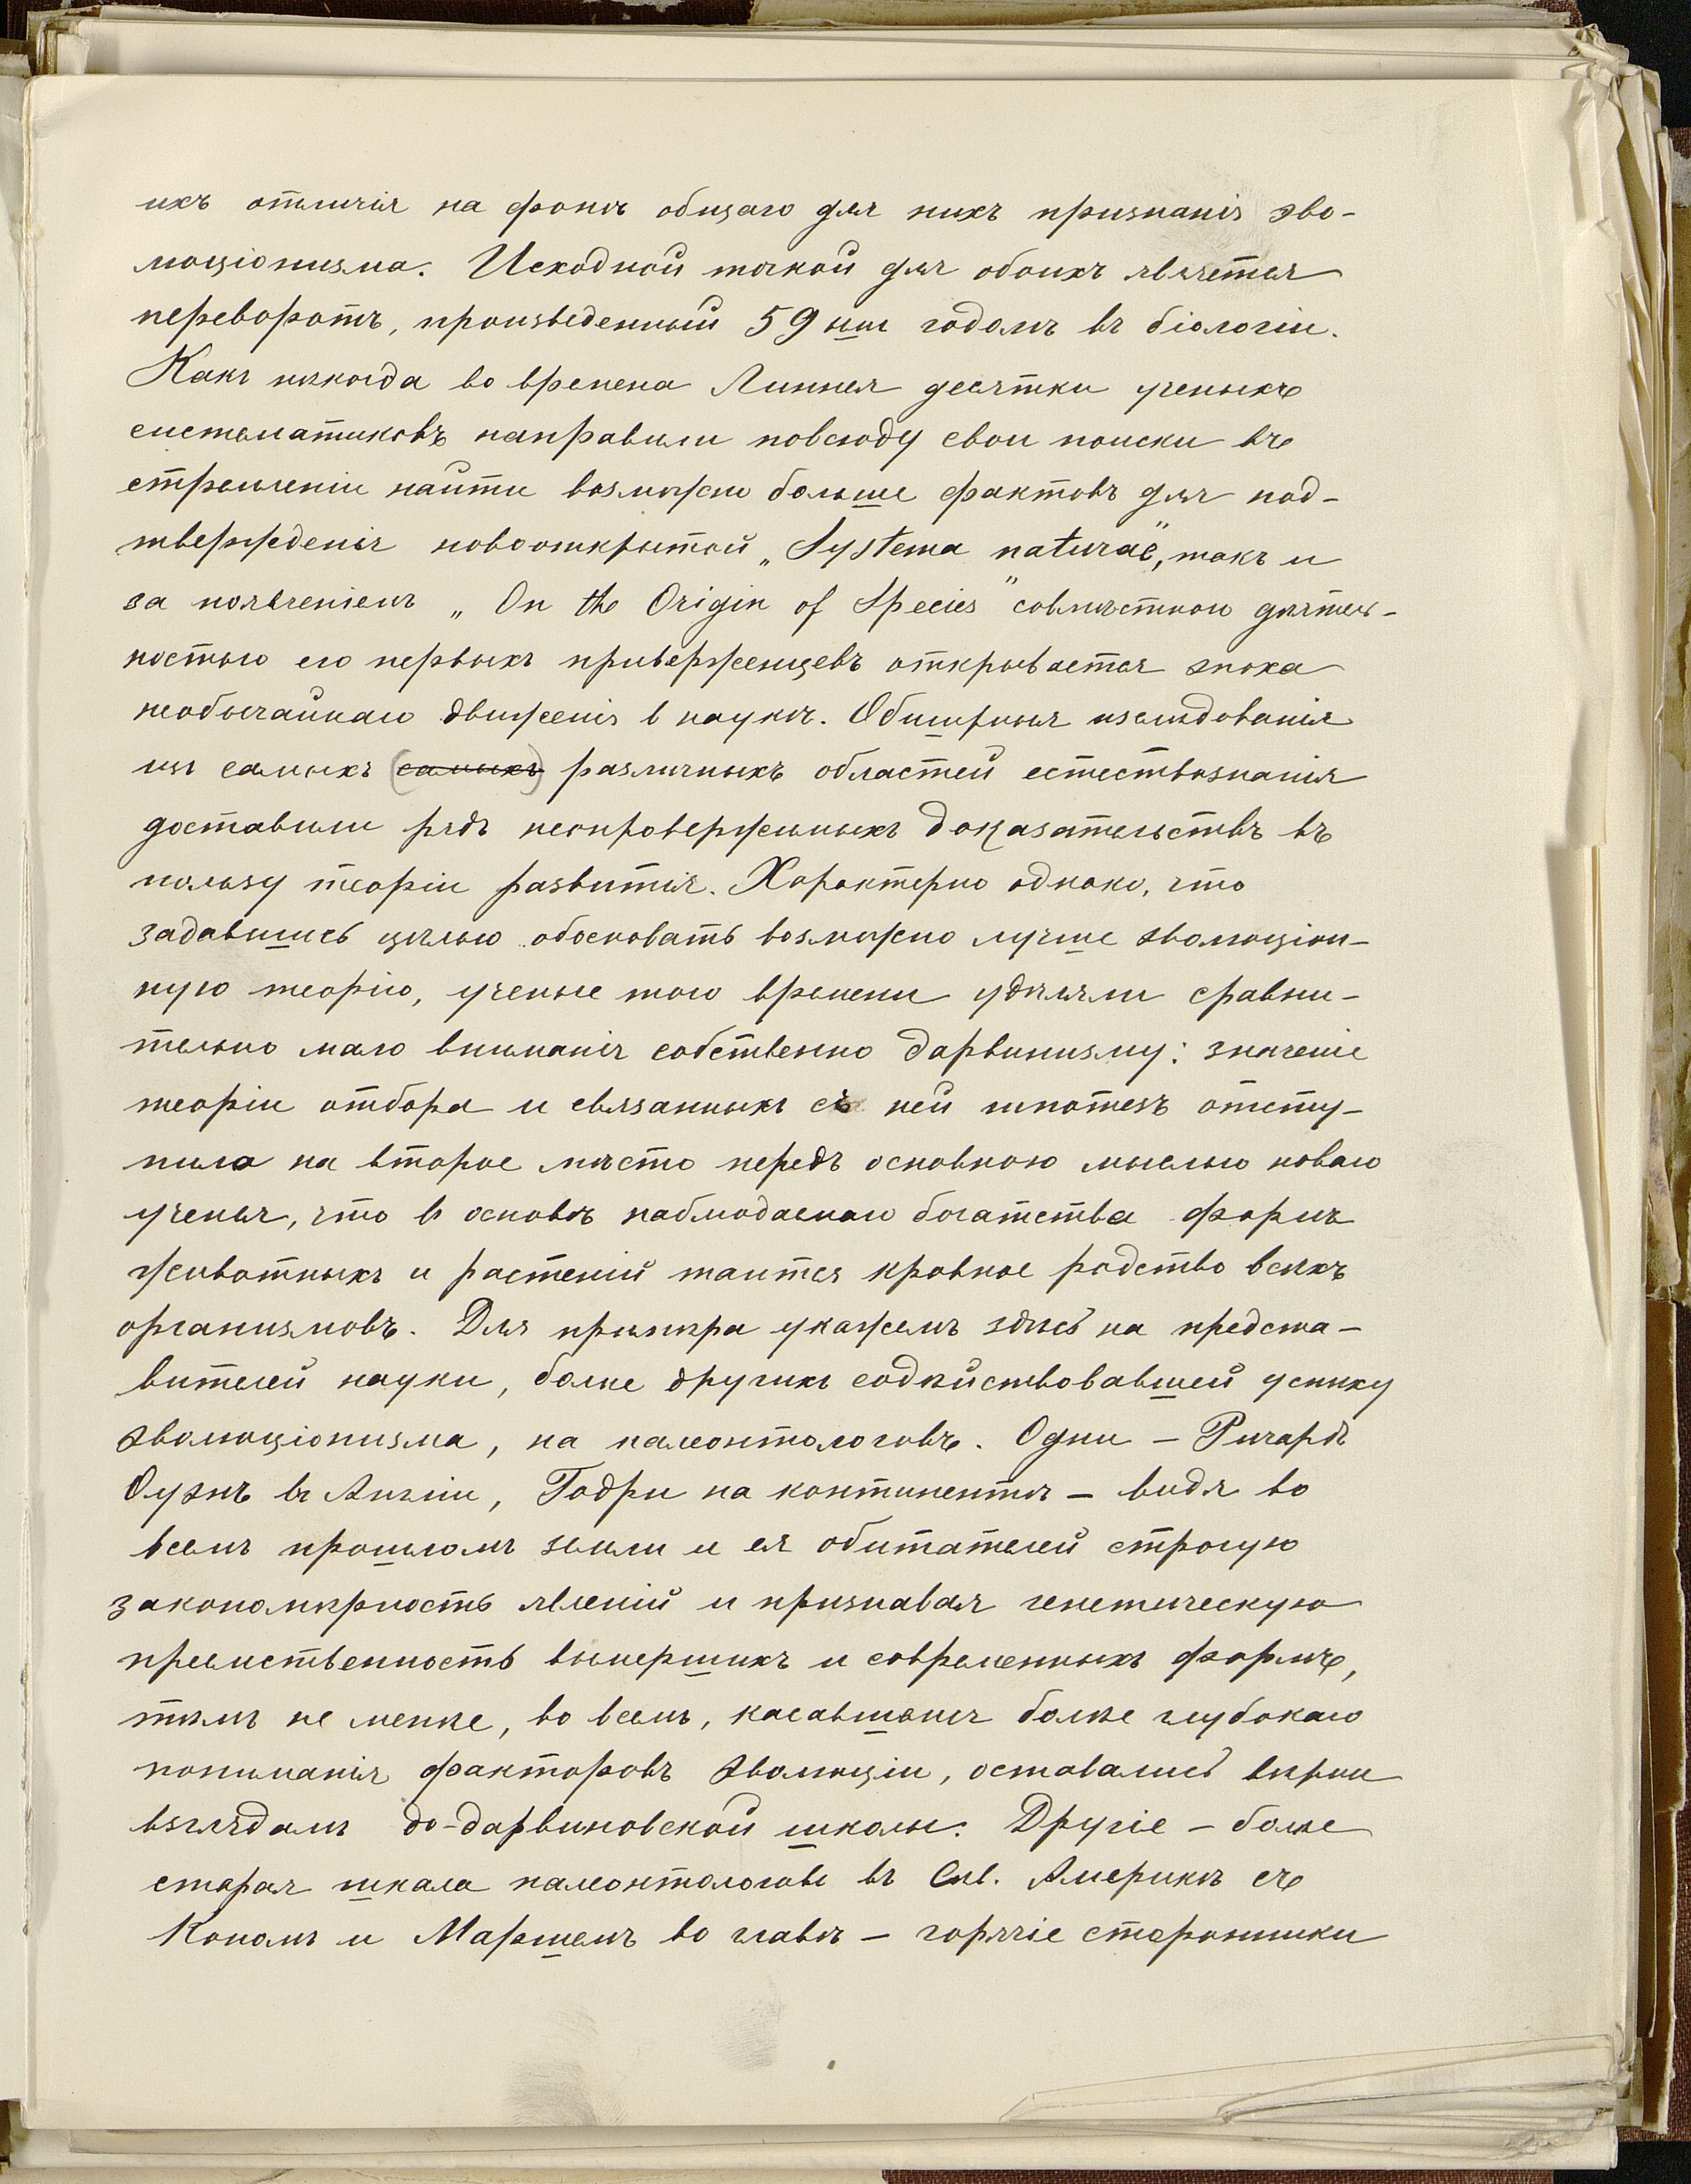 ихъ отличія на фонѣ общаго для нихъ признанія эво-
люціонизма. Исходной точкой для обоихъ является
переворотъ, произведенный 59 ым годомъ въ біологіи.
Какъ нѣкогда во времена Линнея десятки ученыхъ
систематиковъ направили повсюду свои поиски въ
стремленіи найти возможно больше фактовъ для под-
твержденія новооткрытой „Systema naturae“, такъ и
за появленіемъ „On the Origin of Species“ совмѣстною дѣятель-
ностью его первыхъ приверженцевъ открывается эпоха
необычайнаго движенія в наукѣ. Обширныя изслѣдованія
изъ самыхъ (самыхъ) различныхъ областей естествознанія
доставили рядъ неопровержимыхъ доказательствъ въ
пользу теоріи развитія. Характерно однако, что
задавшись цѣлью обосновать возможно лучше эволюціон-
ную теорію, ученые того времени удѣляли сравни-
тельно мало вниманія собственно дарвинизму: значеніе
теоріи отбора и связанныхъ съ ней гипотезъ отсту-
пило на второе мѣсто передъ основною мыслью новаго
ученія, что въ основѣ наблюдаемаго богатства формъ
животныхъ и растеній таится кровное родство всѣхъ
организмовъ. Для примѣра укажемъ здѣсь на предста-
вителей науки, болѣе другихъ содѣйствовавшей успѣху
эволюціонизма, на палеонтологовъ. Одни – Ричардъ
Оуэнъ въ Англіи, Годри на континентѣ – видя во
всемъ прошломъ земли и ея обитателей строгую
закономѣрность явленій и признавая генетическую
преемственность вымершихъ и современныхъ формъ,
тѣмъ не менѣе, во всемъ, касавшемся болѣе глубокаго
пониманія факторовъ эволюціи, оставались вѣрны
взглядамъ до-дарвиновской школы. Другіе – болѣе
старая школа палеонтологовъ въ Сѣв. Америкѣ съ
Копомъ и Маршемъ во главѣ – горячіе сторонники